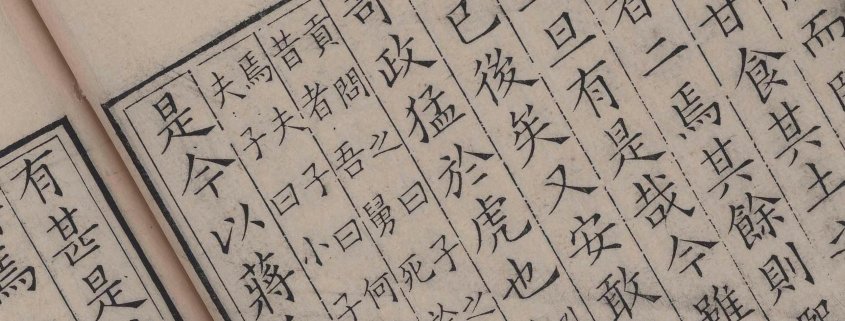 而
甘食其土之
者二焉其餘則熙
旦有是哉今雖
已後矣又安敢
苛政猛於虎也
貢問之曰子之
昔者吾舅死於
焉夫子曰何
夫子曰小子
是今以蔣
有甚是
焉